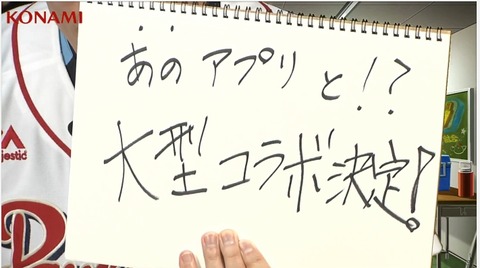 KONAMI
あの アプリ と!?
大型 コラボ 決定!
majestic